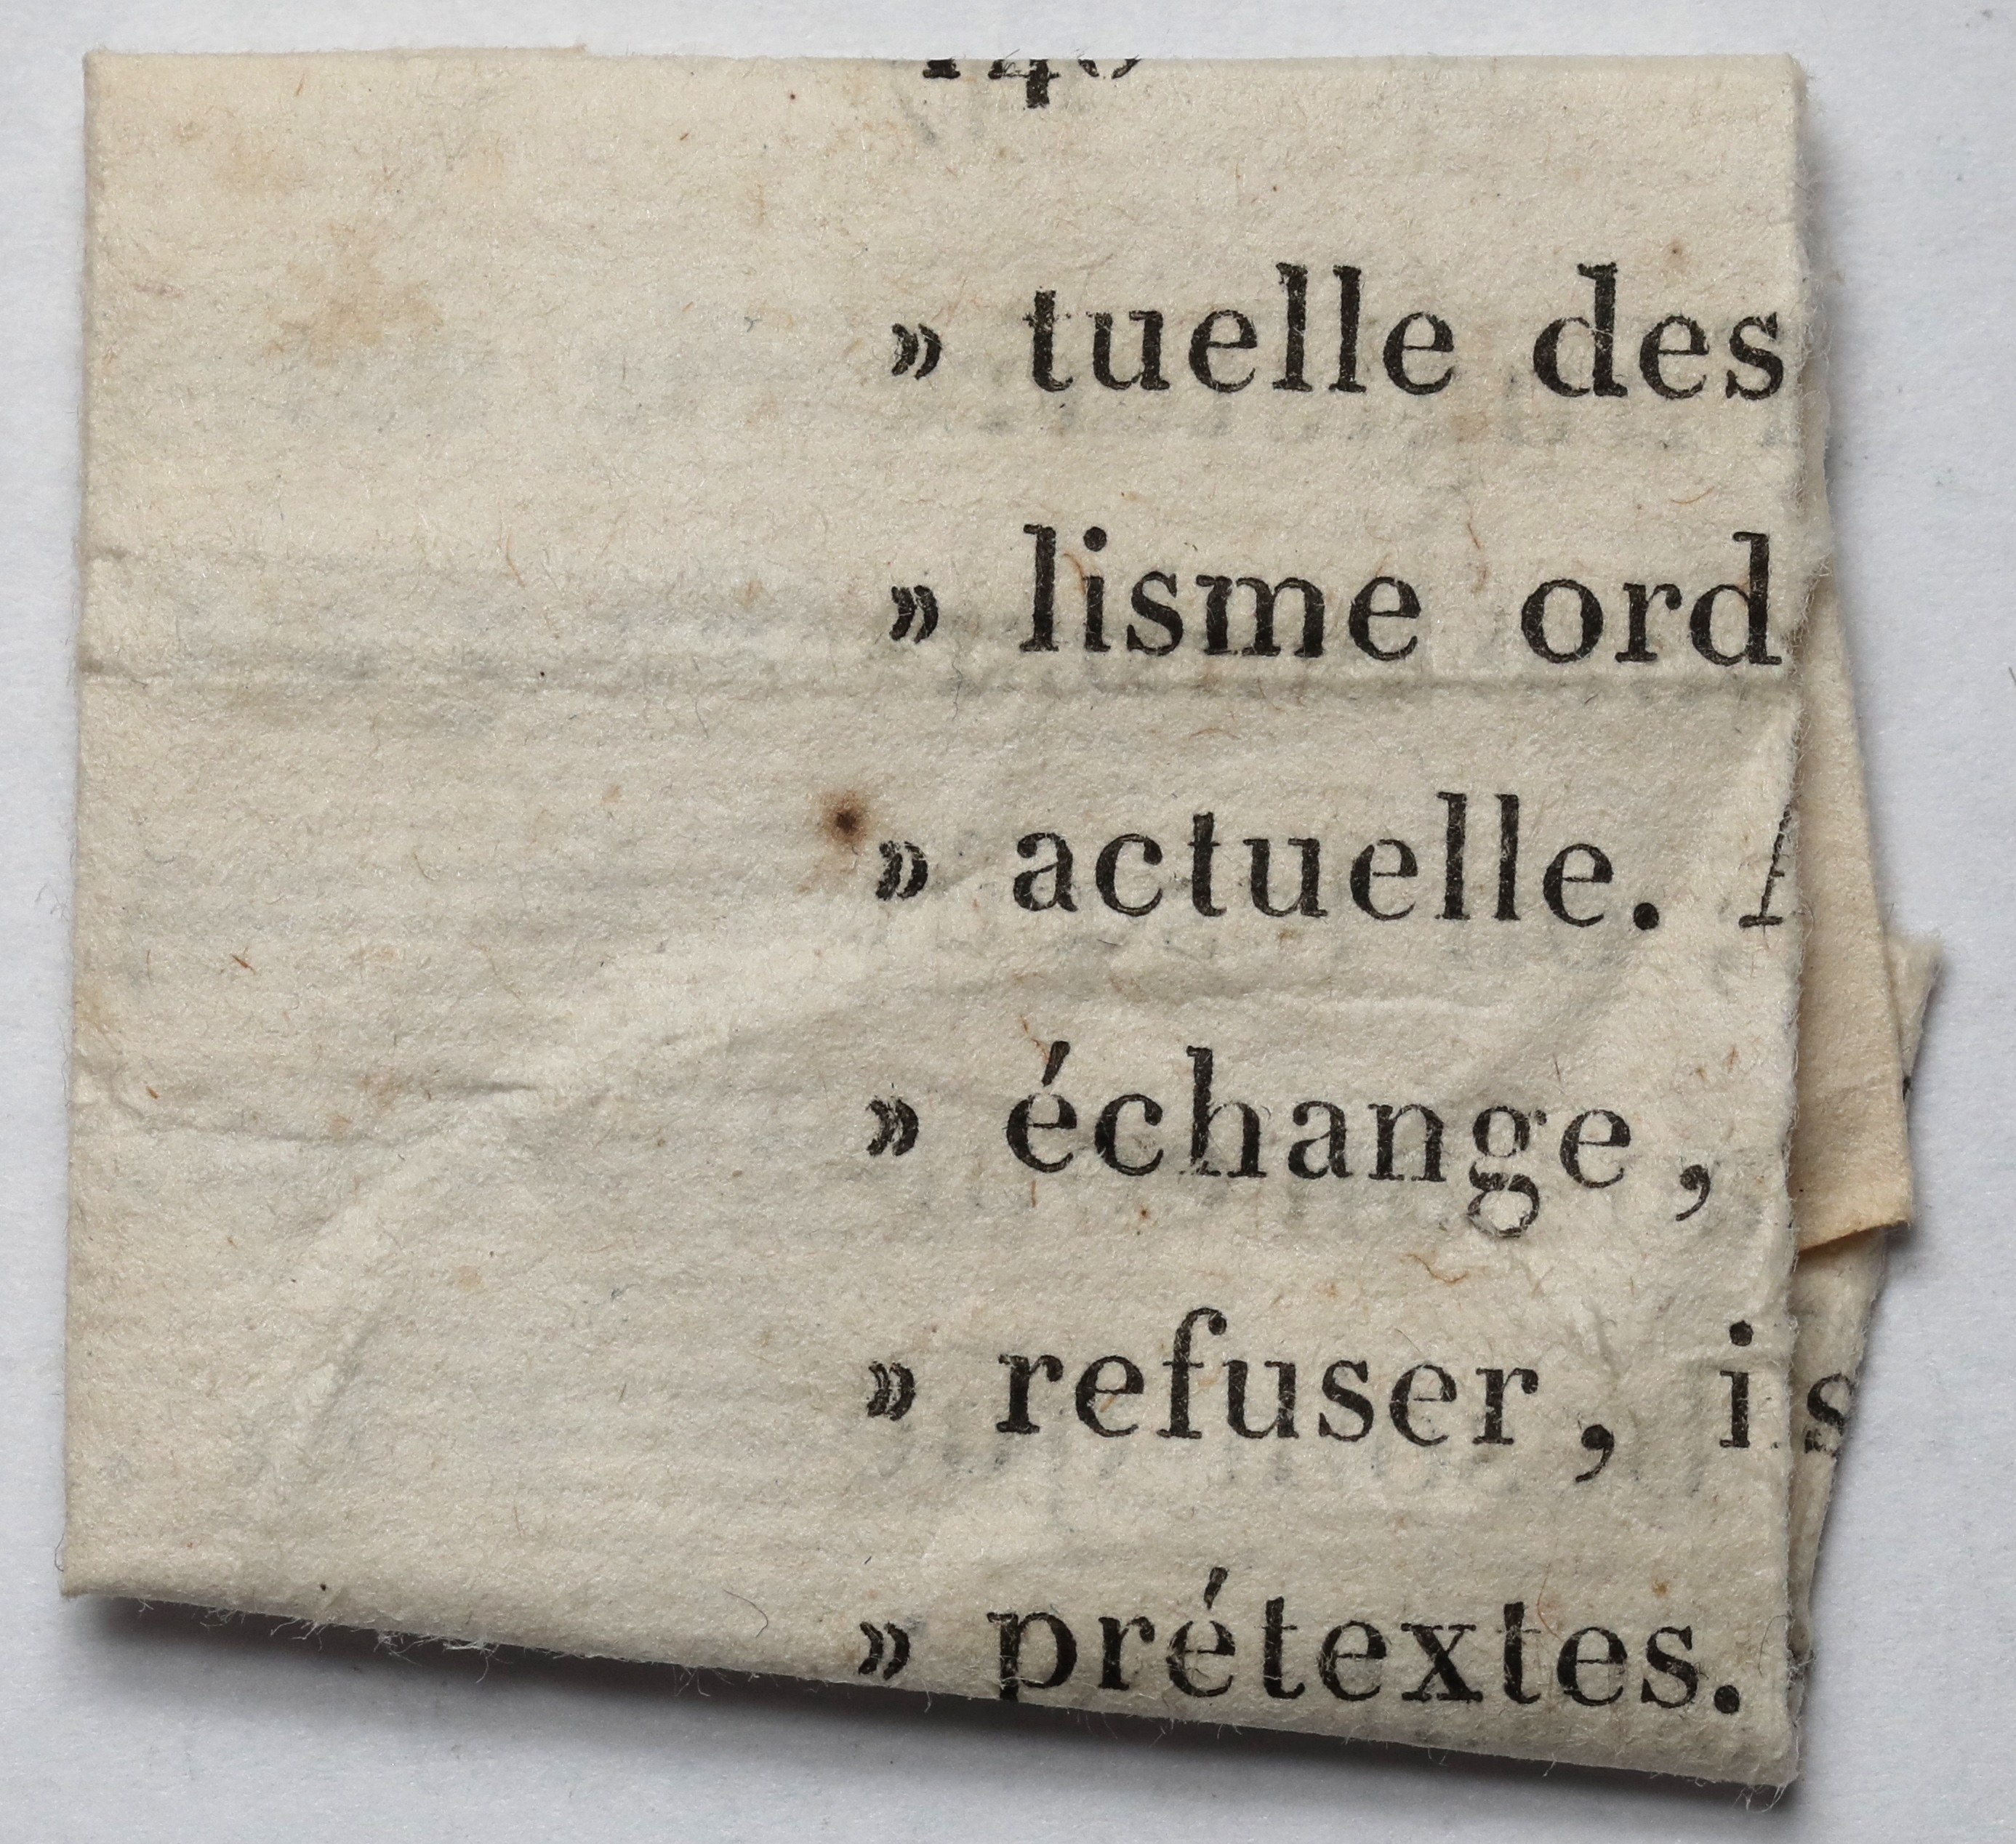 » tuelle des
» lisme ord
» actuelle.
» échange,
» refuser, i s
» prétextes.